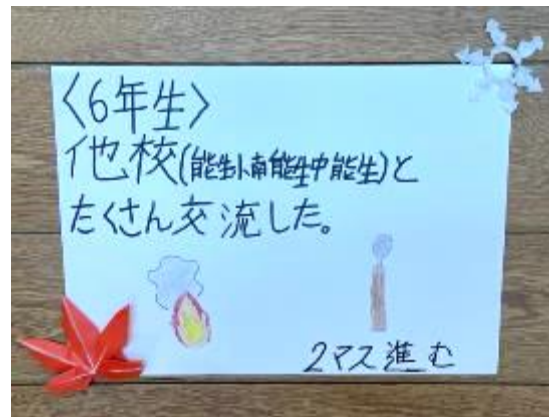 〈6年生〉
他校(能生小南能生中能生)と
たくさん交流した。
2マス進む